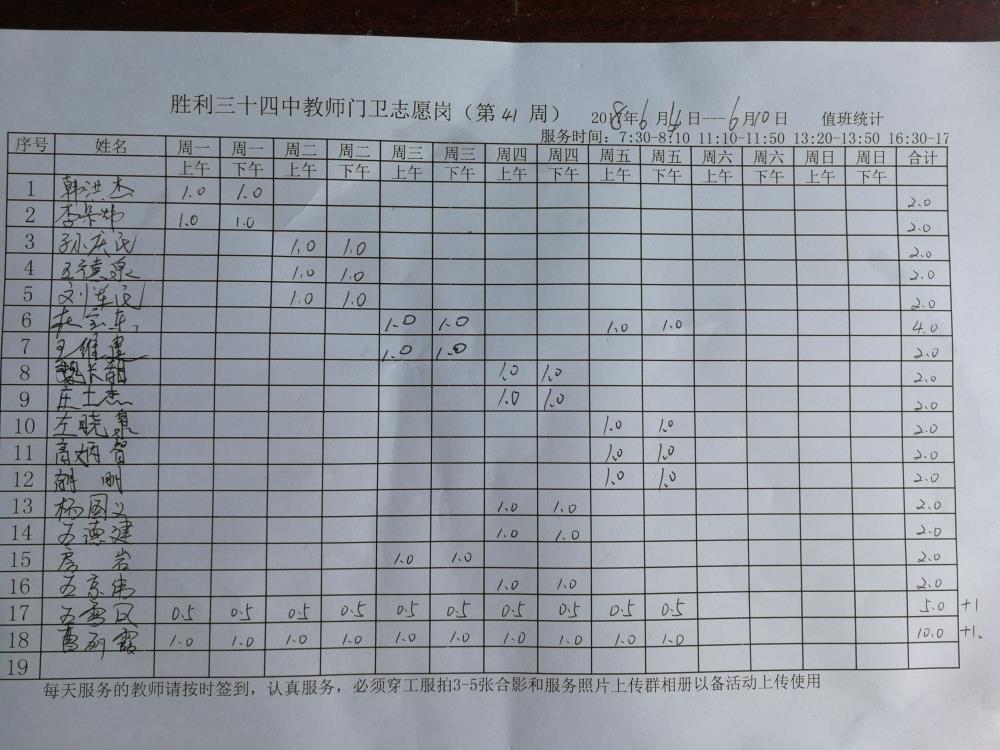 胜利三十四中教师门卫志愿岗（第 41 周） 2018年6月4日---6月10日 值班统计
服务时间: 7:30-8:10 11:10-11:50 13:20-13:50 16:30-17
序号 姓名 周一 周一 周二 周二 周三 周三 周四 周四 周五 周五 周六 周六 周日 周日 合计
上午 下午 上午 下午 上午 下午 上午 下午 上午 下午 上午 下午 上午 下午
1 韩洪杰 1.0 1.0 2.0
2 李 1.0 1.0 2.0
3 孙庆民 1.0 1.0 2.0
4 王 泉 1.0 1.0 2.0
5 刘 民 1.0 1.0 2.0
6 宝东 1.0 1.0 1.0 1.0 4.0
7 王维建 1.0 1.0 2.0
8 魏 1.0 1.0 2.0
9 庄士杰 1.0 1.0 2.0
10 左晓泉 1.0 1.0 2.0
11 高炳智 1.0 1.0 2.0
12 胡明 1.0 1.0 2.0
13 杨国义 1.0 1.0 2.0
14 王德建 1.0 1.0 2.0
15 房岩 1.0 1.0 2.0
16 王京伟 1.0 1.0 2.0
17 王雪 0.5 0.5 0.5 0.5 0.5 0.5 0.5 0.5 0.5 0.5 5.0 +1
18 曹丽霞 1.0 1.0 1.0 1.0 1.0 1.0 1.0 1.0 1.0 1.0 10.0 +1.
19
每天服务的教师请按时签到，认真服务，必须穿工服拍3-5张合影和服务照片上传群相册以备活动上传使用